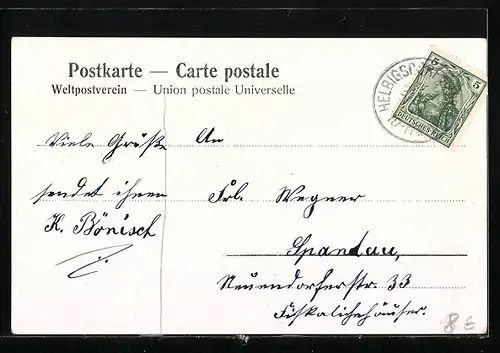 Postkarte — Carte postale
Weltpostverein — Union postale Universelle
HELBIGSD
5 5
DEUTSCHES REICH
Viele Grüße
sendet ihnen
K. Bönisch
An
Frl. Wegner
Spandau,
Neuendorferstr. 33
Fiskalischehäuser.
8 €